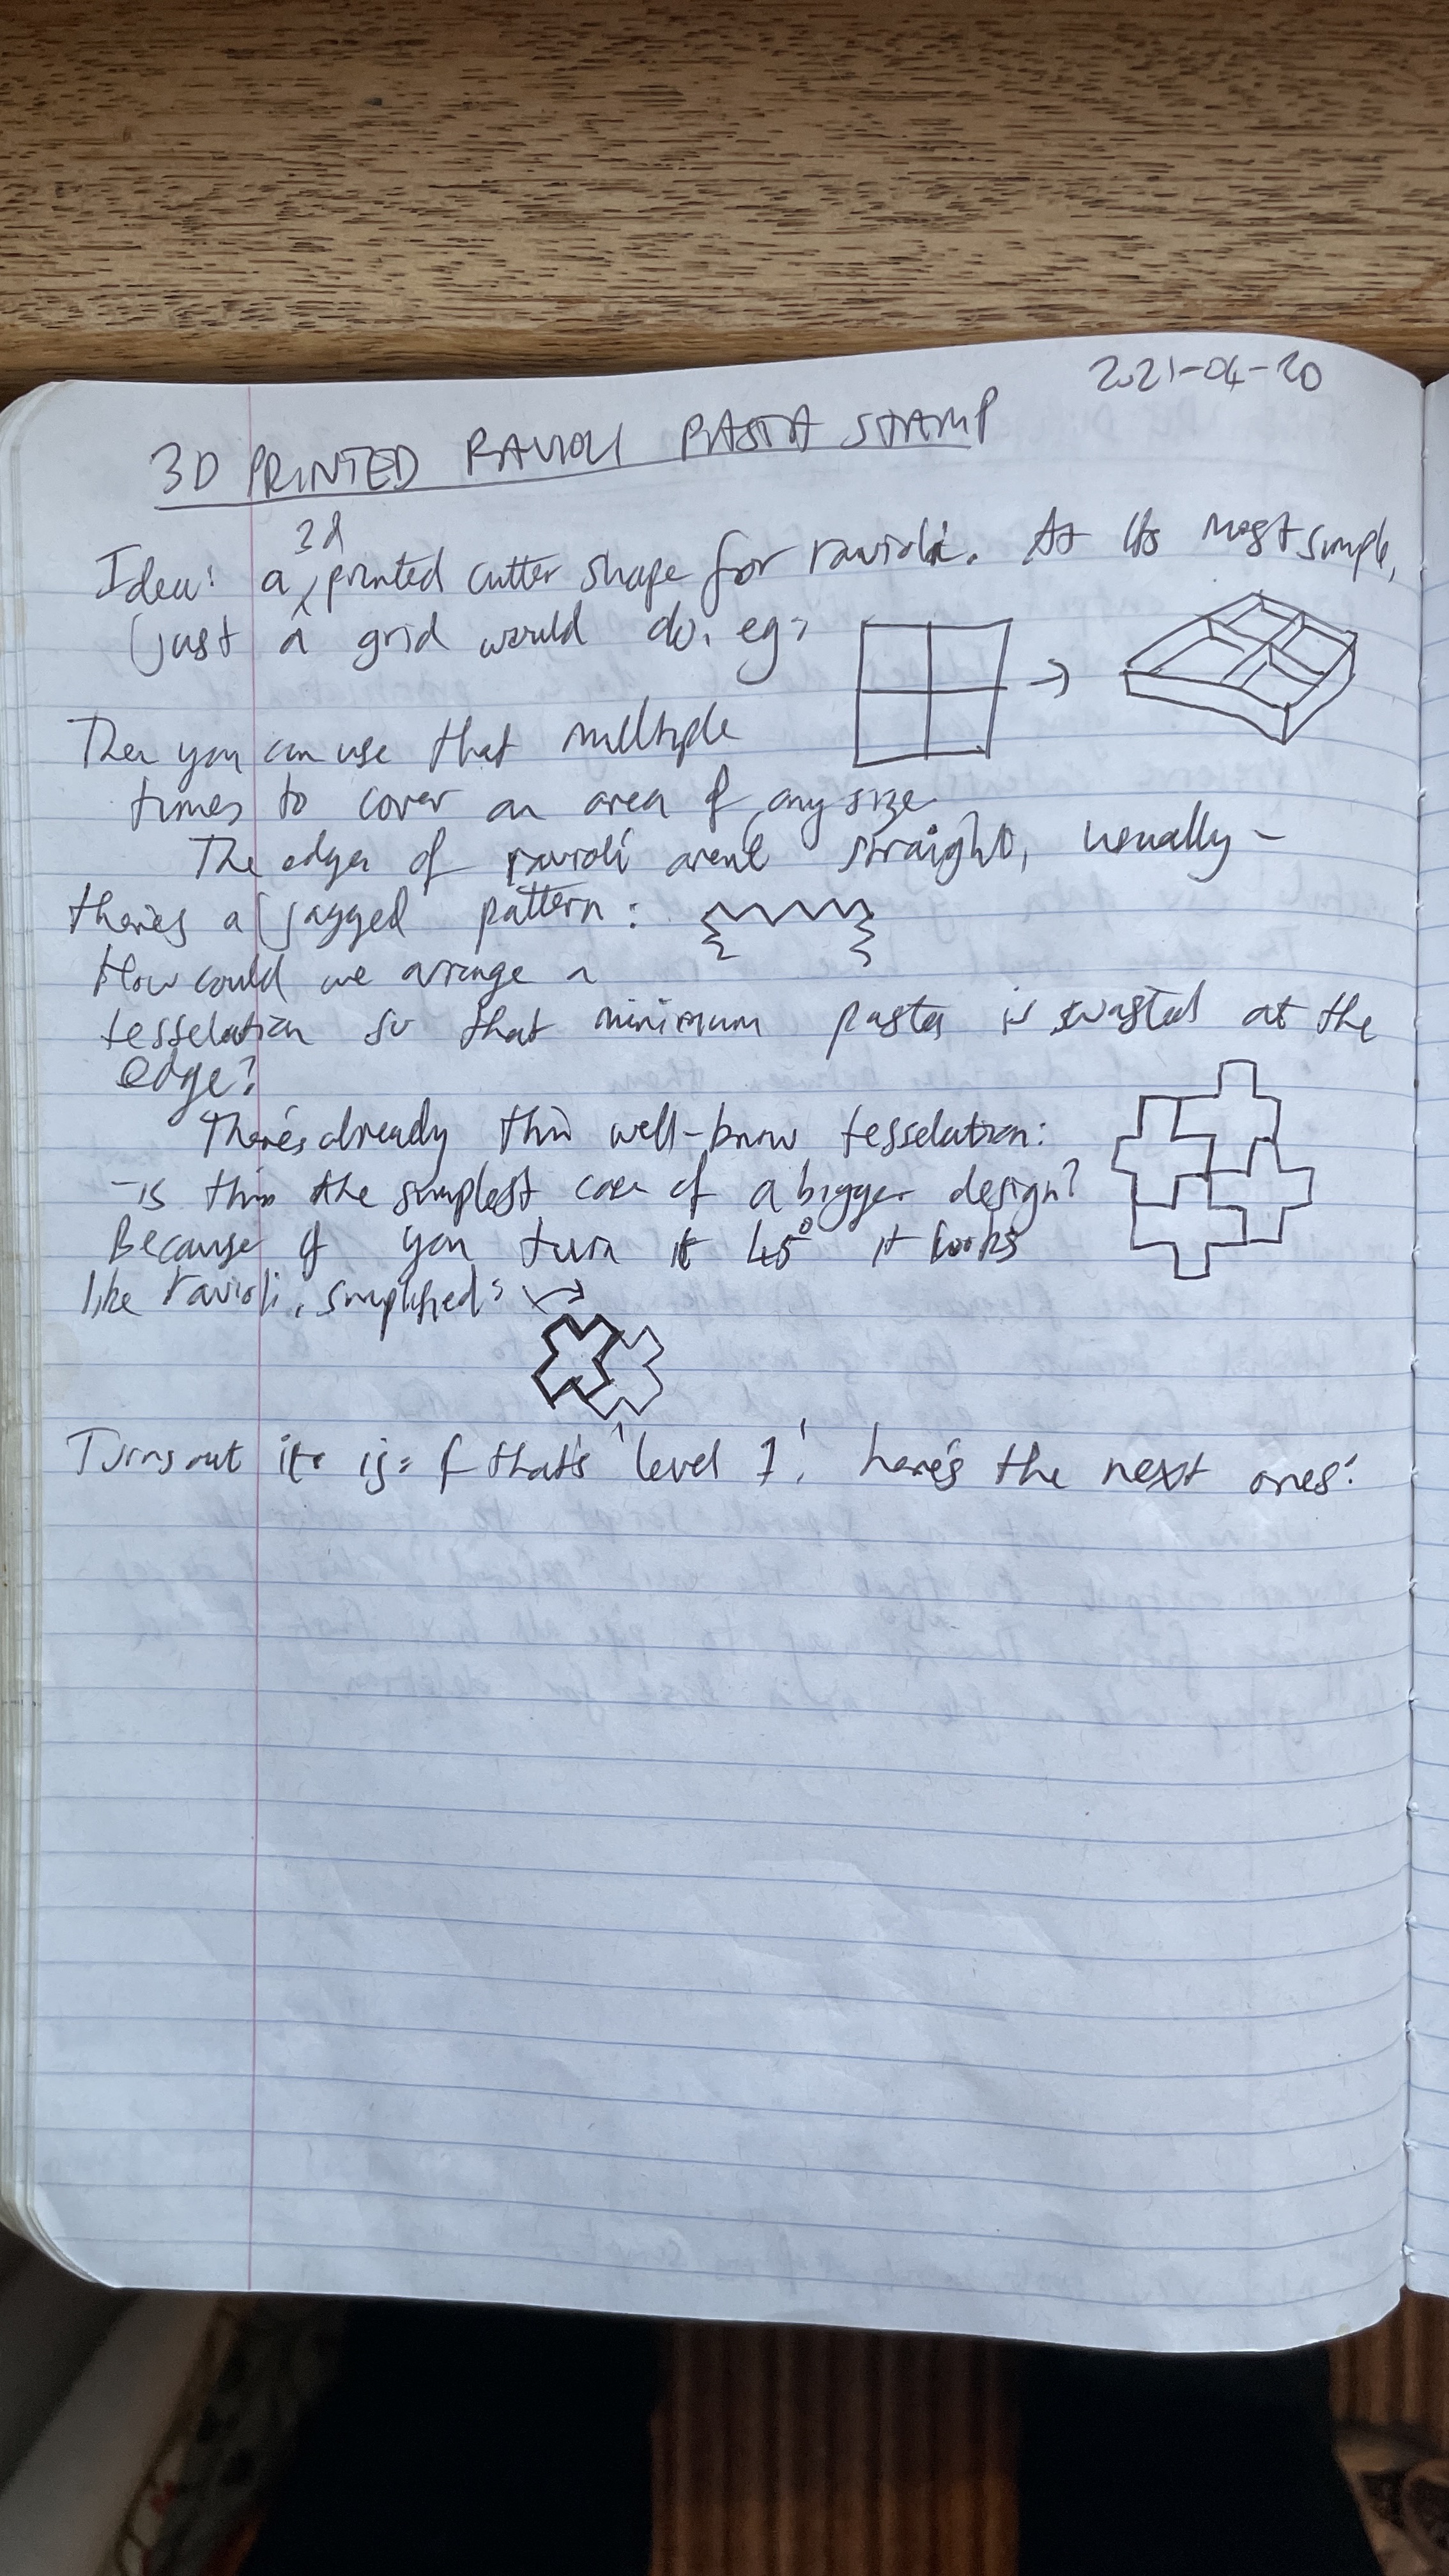 2021-04-20
3D PRINTED RAVIOLI PASTA STAMP
Idea: a 3d printed cutter shape for ravioli. At its most simple,
just a grid would do, eg:
Then you can use that multiple
times to cover an area of any size
The edges of ravioli aren't straight, usually -
there's a jagged pattern:
How could we arrange a
tesselation so that minimum pasta is wasted at the
edge?
There's already this well-know tesselation:
- is this the simplest case of a bigger design?
Because if you turn it 45° it looks
like ravioli, simplified:
Turns out it is: if that's 'level 1', here's the next ones: